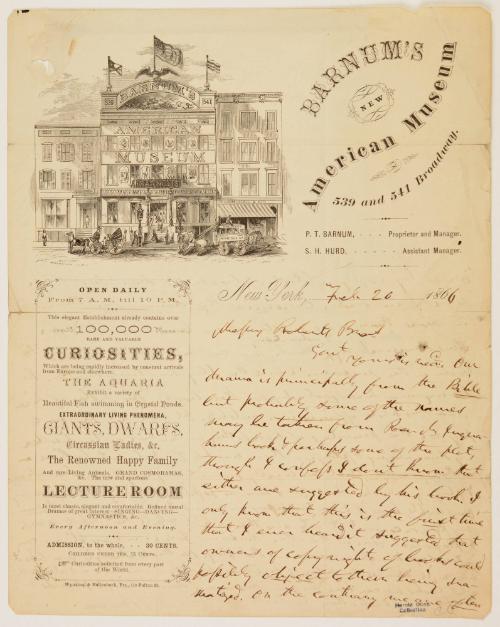 BARNUM'S
NEW
American Museum
539 and 541 Broadway.
P. T. BARNUM, Proprietor and Manager.
S. H. HURD, Assistant Manager.
539
BARNUM'S
541
AMERICAN
MUSEUM
OPEN DAILY
From 7 A. M. till 10 P. M.
This elegant Establishment already contains over
100,000
RARE AND VALUABLE
CURIOSITIES,
Which are being rapidly increased by constant arrivals
from Europe and elsewhere.
THE AQUARIA
Exhibit a variety of
Beautiful Fish swimming in Crystal Ponds.
EXTRAORDINARY LIVING PHENOMENA,
GIANTS, DWARFS,
Circassian Ladies, &c.
The Renowned Happy Family
And rare Living Animals, GRAND COSMORAMAS,
&c. The new and spacious
LECTURE ROOM
Is most classic, elegant and comfortable. Refined moral
Dramas of great interest—SINGING—DANCING—
GYMNASTICS, &c.
Every Afternoon and Evening.
ADMISSION, to the whole, 30 CENTS.
CHILDREN UNDER TEN, 15 CENTS.
Curiosities solicited from every part
of the World.
Wynkoop & Hallenbeck, Prs., 113 Fulton St.
New York, Feb 20 1866
Messrs Roberts Bros
Gent Yours is recd. Our
drama is principally from the Bible
but probably some of the names
may be taken from
book & perhaps some of the plot,
though I confess I don't know that
either are suggested by his book. I
only know that this is the first time
that I ever heard it suggested that
owners of copyright of books could
object to their being dra-
matized. On the contrary we are often
Collection